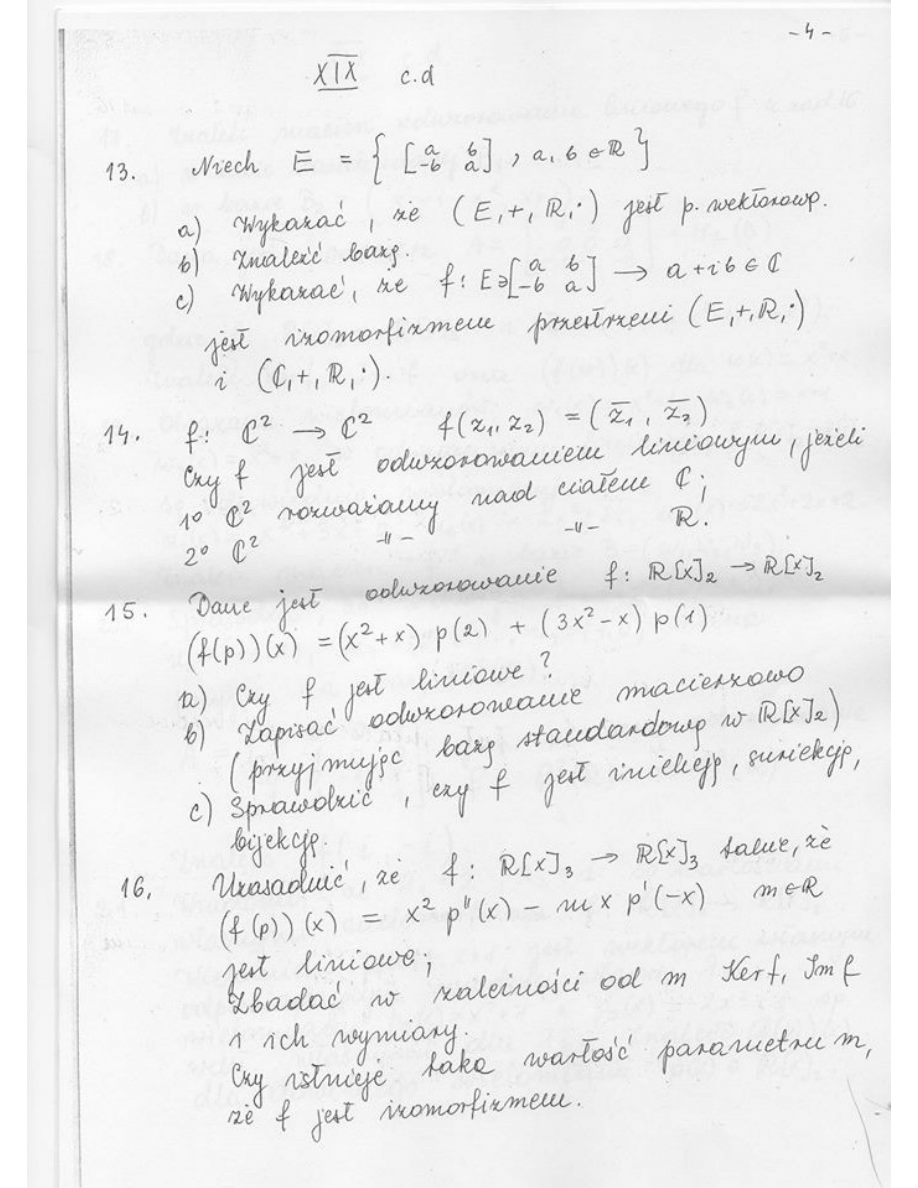 -4-
XIX c.d
13. Niech E = { [a b -b a] , a, b ∈ ℝ }
a) Wykazać, że (E,+,ℝ,·) jest p. wektorową.
b) Znaleźć bazę.
c) Wykazać, że f: E∋[a b -b a] → a+ib ∈ ℂ
jest izomorfizmem przestrzeni (E,+,ℝ,·)
i (ℂ,+,ℝ,·).
14. f: ℂ² → ℂ² f(z₁,z₂) = (z̄₁, z̄₂)
Czy f jest odwzorowaniem liniowym, jeżeli
1° ℂ² rozważamy nad ciałem ℂ;
2° ℂ² -"- -"- ℝ.
15. Dane jest odwzorowanie f: ℝ[x]₂ → ℝ[x]₂
(f(p))(x) = (x²+x) p(2) + (3x²-x) p(1)
a) Czy f jest liniowe?
b) Zapisać odwzorowanie macierzowo
(przyjmując bazę standardową w ℝ[x]₂)
c) Sprawdzić, czy f jest iniekcją, suriekcją,
bijekcją.
16. Uzasadnić, że f: ℝ[x]₃ → ℝ[x]₃ takie, że
(f(p))(x) = x² p''(x) - mx p'(-x) m∈ℝ
jest liniowe;
Zbadać w zależności od m Ker f, Im f
i ich wymiary.
Czy istnieje taka wartość parametru m,
że f jest izomorfizmem.